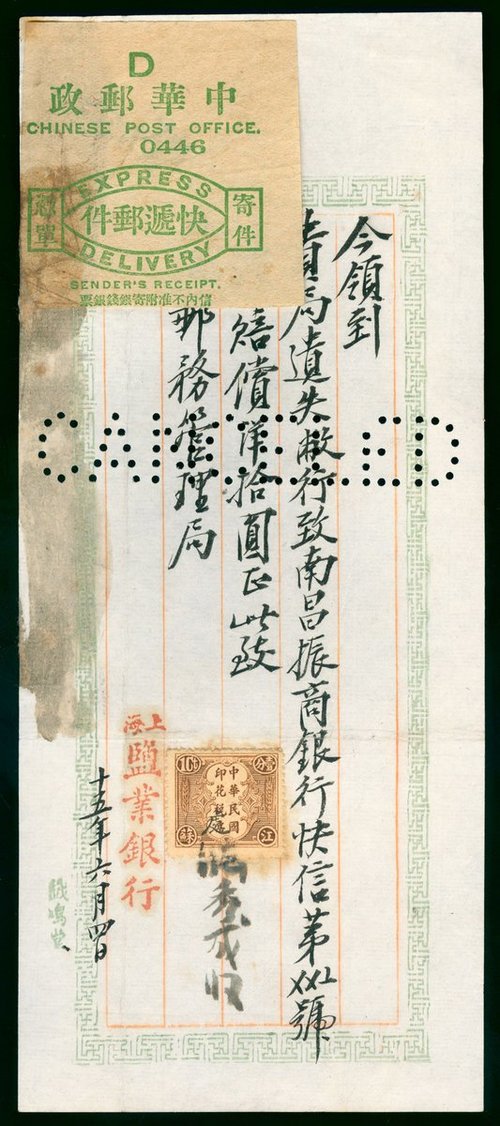 D
中華郵政
CHINESE POST OFFICE.
0446
EXPRESS
寄件
快遞郵件
憑單
DELIVERY
SENDER'S RECEIPT.
信內不准附寄銀錢銀票
CANCELLED
今領到
貴局遺失敝行致南昌振商銀行快信第〤〤〢號
賠償洋拾圓正此致
郵務管理局
壹分
中華民國
印花稅
江蘇
上海
鹽業銀行
十五年六月四日